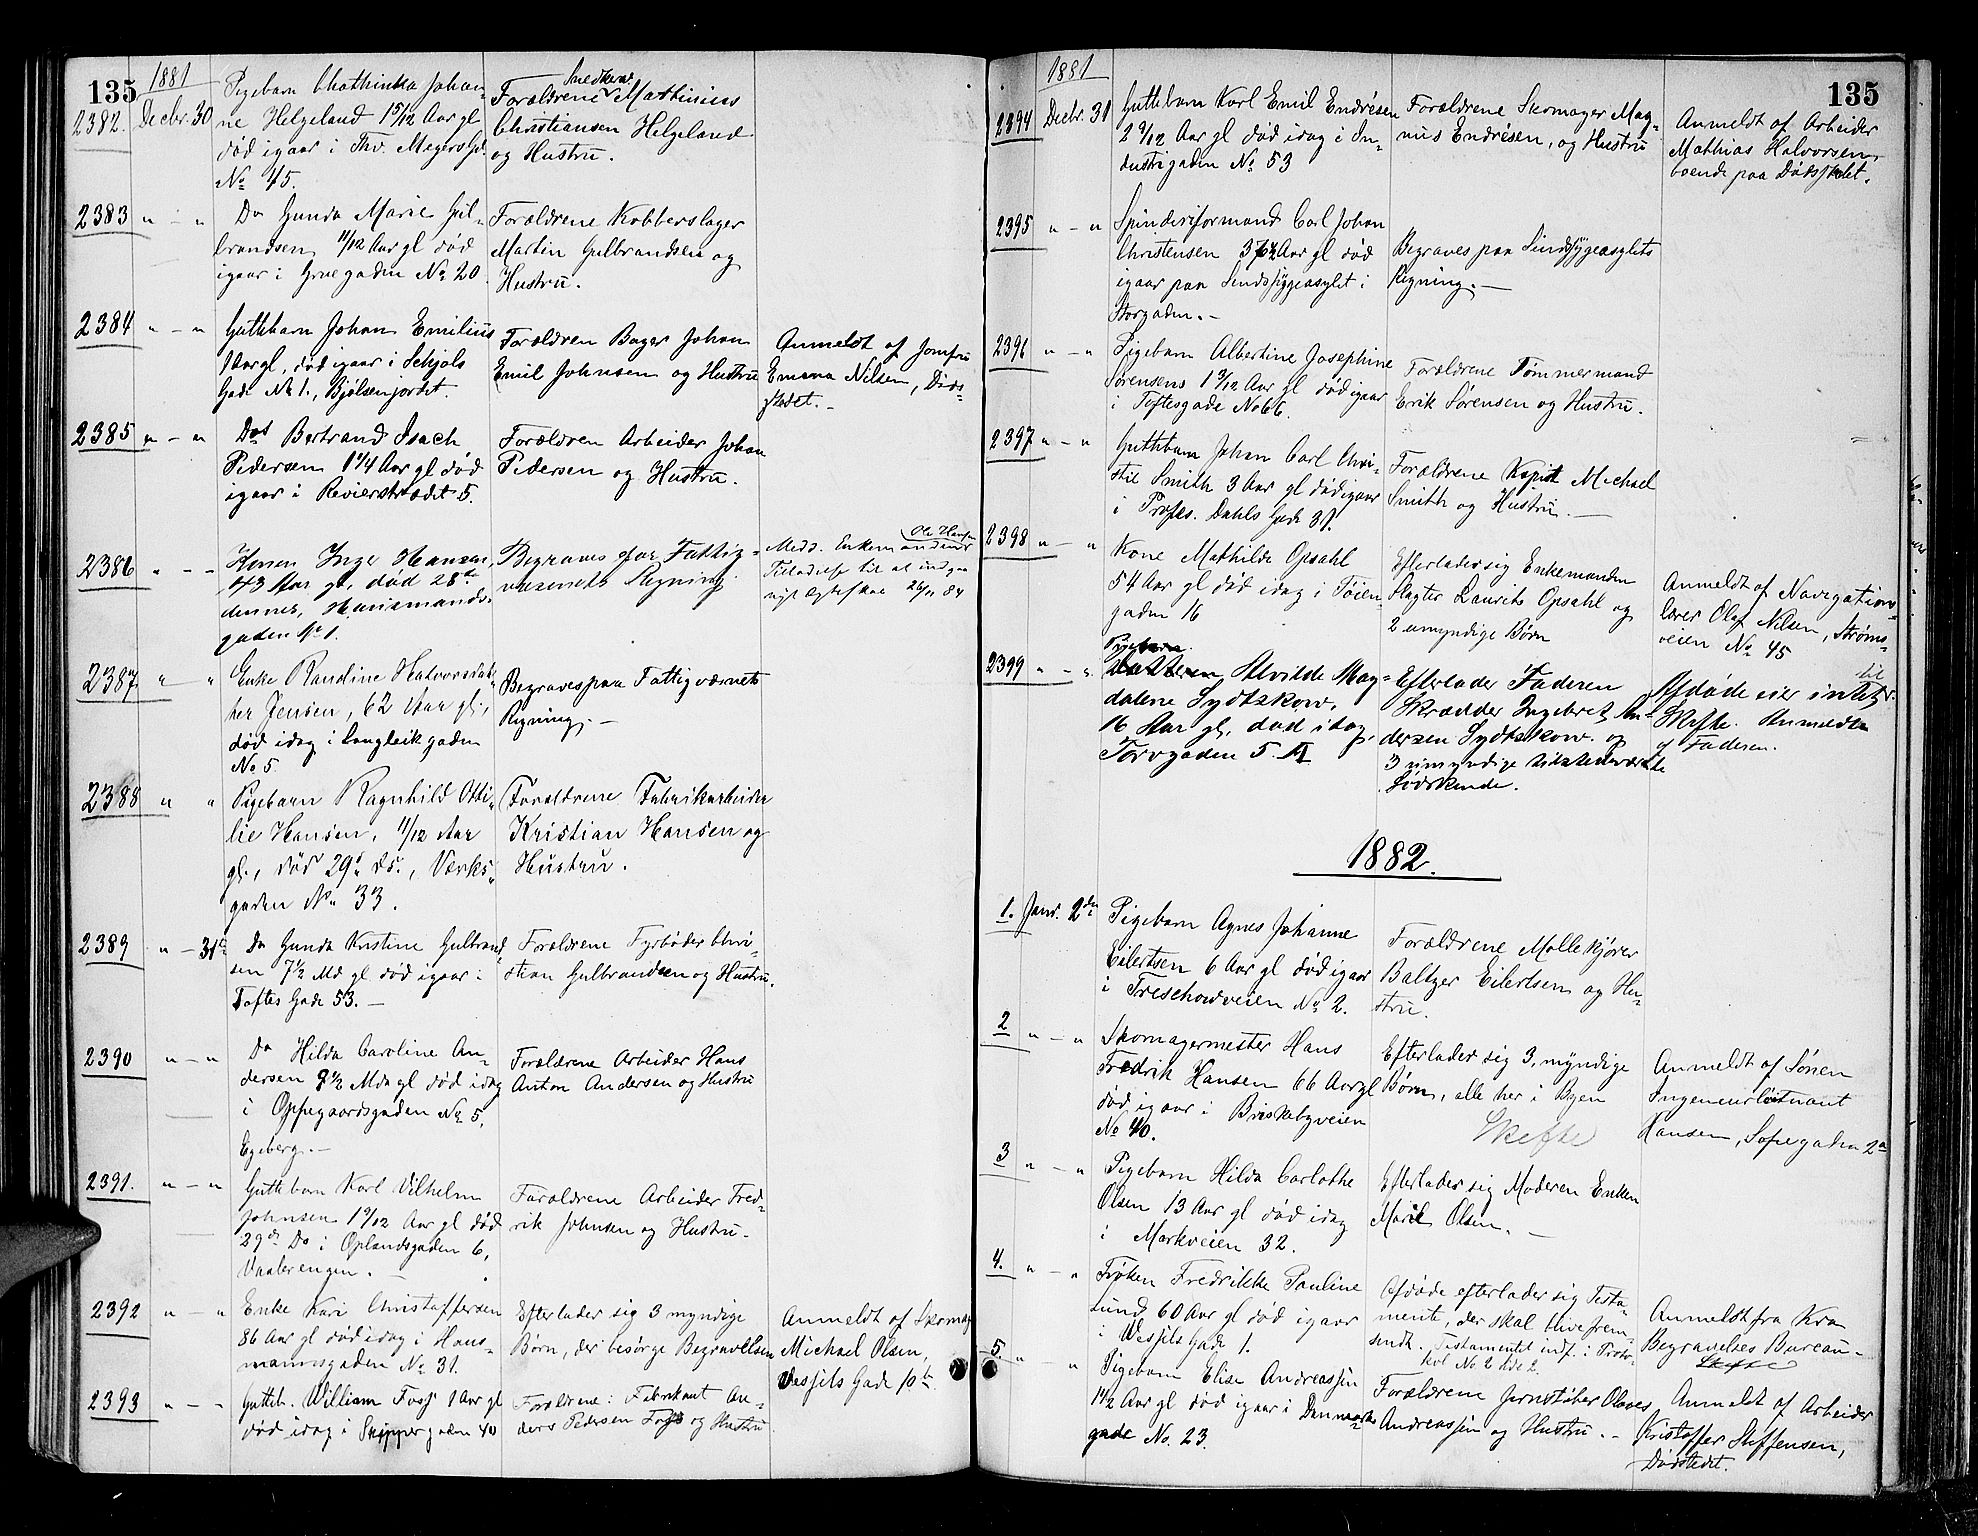 135
1881
2382. Decbr. 30
Pigebarn Chathinka Johan-
ne Helgeland 1 5/12 Aar gl
død igaar i Thv. Meyers Gd.
No 45.
Forældrene Snedker Mathinius
Christiansen Helgeland
og Hustru.
2383 " - "
Do Gunda Marie Gul-
brandsen 11/12 Aar gl død
igaar i Gruegaden No 20
Forældrene Kobberslager
Martin Gulbrandsen og
Hustru.
2384 " - "
Guttebarn Johan Emilius
1 Aar gl, død igaar i Schjøls
Gade No 1., Bjølsenjordet.
Forældren Bager Johan
Emil Johnsen og Hustru
Anmeldt af Jomfru
Emma Nilsen, Døds-
stedet. -
2385 " - "
Do Bertrand Isach
Pedersen 1 1/4 Aar gl død
igaar i Revierstrædet 5.
Forældren Arbeider Johan
Pedersen og Hustru.
2386 " - "
Konen Inge Hansen,
43 Aar gl, død 28de
dennes, Hausmands-
gaden No 1.
Begraves for Fattig-
væsenets Regning.
Medd. Enkemanden Ole Hansen
Tilladelse til at indgaa
nyt Ægteskab 26/11 84
2387 " "
Enke Randine Halvorsdat-
ter Jensen, 62 Aar gl.,
død idag i Langleikgaden
No 5.
Begraves paa Fattigværnets
Regning. -
2388 " "
Pigebarn Ragnhild Otti-
lie Hansen, 11/12 Aar
gl., død 29de ds., Værks-
gaden No 33.
Forældrene Fabrikarbeider
Kristian Hansen og
Hustru.
2389 " - 31te
Do Gunda Kristine Gulbrand-
sen 7 1/2 Md gl død igaar i
Toftes Gade 53. -
Forældrene Fyrbøder Chri-
stian Gulbrandsen og Hustru.
2390 " - "
Do Hilda Caroline An-
dersen 8 1/2 Mdr gl død idag
i Opfregaardsgaden No 5,
Egeberg. -
Forældrene Arbeider Hans
Anton Andersen og Hustru
2391. " - "
Guttebarn Karl Vilhelm
Johnsen 1 9/12 Aar gl død
29de Do i Oplandsgaden 6,
Vaalerengen. -
Forældrene Arbeider Fred-
rik Johnsen og Hustru. -
2392 " - "
Enke Kari Christoffersen
86 Aar gl død idag i Haus-
mannsgaden No 31.
Efterlader sig 3 myndige
Børn, der besørge Begravelsen
Anmeldt af Skomag
Michael Olsen,
Wessels Gade 10 b.
2393 " - "
Guttb. William Foss 1 Aar gl
død idag i Skippergaden 40
Forældrene: Fabrikant An-
ders Pedersen Foss og Hustru
135
1881
2394 Decbr. 31
Guttebarn Karl Emil Endresen
2 9/12 Aar gl død idag i In-
dustrigaden No 53
Forældrene Skomager Mag-
nus Endresen, og Hustru
Anmeldt af Arbeider
Mathias Halvorsen,
boende paa Dødsstedet.
2395 " - "
Spinderiformand Carl Johan
Christensen Aar gl død
igaar paa Sindssygeasylet i
Storgaden. -
Begraves paa Sindssygeasylets
Regning. -
2396 " - "
Pigebarn Albertine Josephine
Sørensens 1 9/12 Aar gl død igaar
i Toftesgade No 66.
Forældrene Tømmermand
Erik Sørensen og Hustru.
2397 " - "
Guttebarn Johan Carl Chri-
stie Smith 3 Aar gl død igaar
i Profes. Dahls Gade 31.
Forældrene Kapit Michael
Smith og Hustru. -
2398 " - "
Kone Mathilde Opsahl
54 Aar gl død idag i Tøien-
gaden 16
Efterlader sig Enkemanden
Slagter Laurits Opsahl og
2 umyndige Børn
Anmeldt af Navigation-
lærer Olaf Nilsen, Strøms-
veien No 45
2399 " - "
Pigebarn
Datteren Alvilde Mag-
dalene Lydtskow,
16 Aar gl, død idag,
Torvgaden 5. A
Efterlader Faderen
Skrædder Ingebret An-
dersen Lydtskow. og
3 umyndige tilstedeværende
Sødskende.
Afdøde eier intet til
Skifte. Anmeldt
af Faderen.
1882.
1. Janr. 2den
Pigebarn Agnes Johanne
Eilertsen 6 Aar gl død igaar
i Treschowveien No 2.
Forældrene Møllekjører
Baltzer Eilertsen og Hu-
stru.
2 " - "
Skomagermester Hans
Fredrik Hansen 66 Aar gl
død igaar i Briskebyveien
No 40.
Efterlader sig 3, myndige
Børn, alle her i Byen
Skifte
Anmeldt af Sønen
Ingeniørløitnant
Hansen, Sofiegaden 2a
3 " - "
Pigebarn Hilda Carlothe
Olsen 13 Aar gl død idag
i Markveien 32.
Efterlader sig Moderen Enken
Marie Olsen. -
4. " - "
Frøken Fredrikke Pauline
Lund 60 Aar gl død igaar
i Wessels Gade 1.
Afdøde efterlader sig Testa-
mente, der skal blive frem-
sendt. Testamentet indf. i Proto-
kol No 2 Side 2.
Anmeldt fra Kra
Begravelses Bureau -
Skifte
5. " "
Pigebarn Elise Andreassen
1 1/2 Aar gl død igaar i Danmarks
gade No. 23.
Forældrene Jernstøber Olaves
Andreassen og Hustru. -
Anmeldt af Arbeider
Kristoffer Steffensen,
Dødstedet.